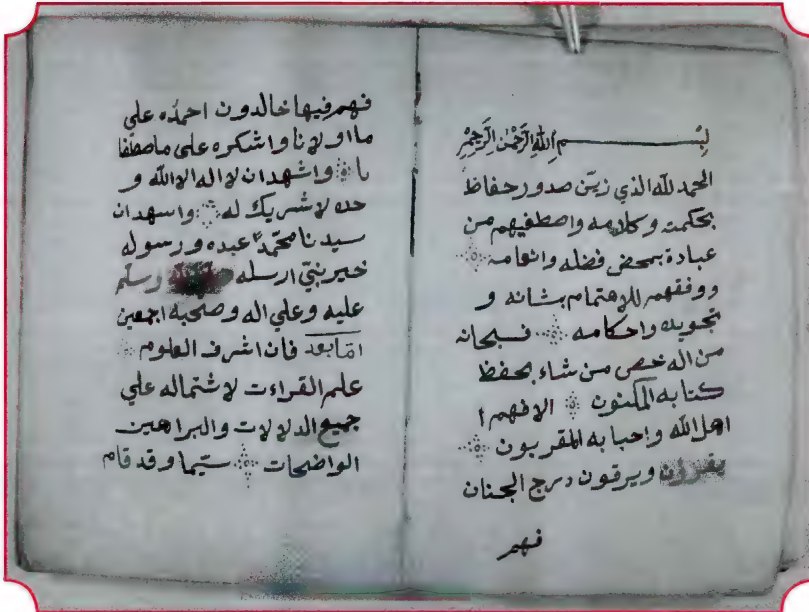 بسم الله الرحمن الرحيم
الحمد لله الذي زين صدور حفاظ
بحكمته وكلامه واصطفيهم من
عبادة بمحض فضله وانعامه
ووفقهم للاهتمام بشانه و
تجويده واحكامه فسبحانه
من اله خص من شاء بحفظ
كتابه المكنون الا فهم ا
اهل الله واحبابه المقربون
يقرؤن ويرقون درج الجنان
فهم
فهم فيها خالدون احمده علي
ما اولانا واشكره على ماصطفا
نا واشهد ان لا اله الا الله و
حده لا شريك له واسهد ان
سيدنا محمدا عبده ورسوله
خير نبي ارسله وسلم
عليه وعلي اله وصحبه اجمعين
امابعد فان اشرف العلوم
علم القراءت لاشتماله علي
جميع الدلالات والبراهين
الواضحات سيما وقد قام